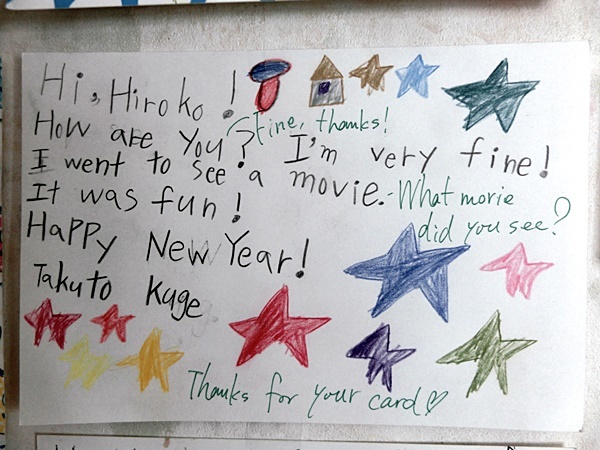 Hi, Hiroko!
How are you? I'm very fine!
Fine, thanks!
I went to see a movie.
What movie
did you see?
It was fun!
Happy New Year!
Takuto Kuge
Thanks for your card♡